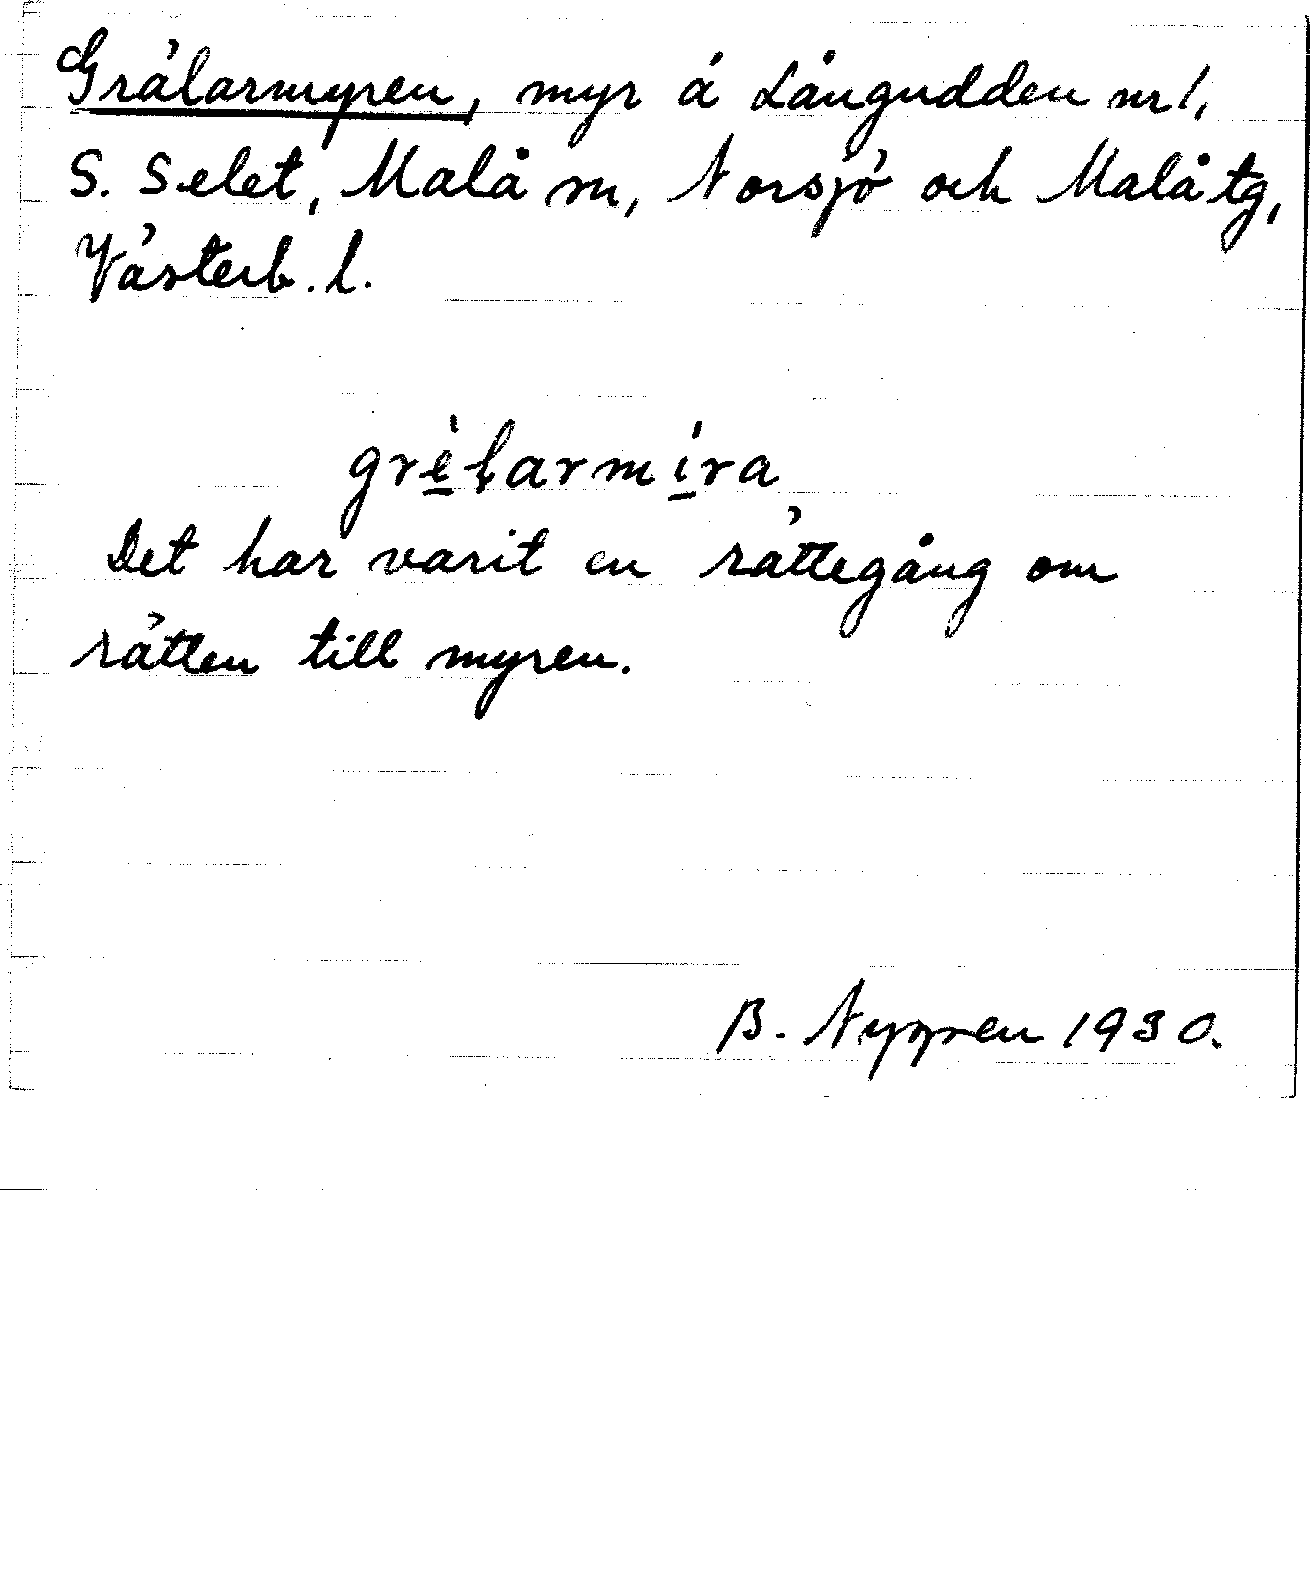 Grälarmyren, myr å Långudden nr 1,
S. Selet, Malå sn, Norsjö och Malå tg,
Västerb. l.
grèłarmíra
Det har varit en rättegång om
rätten till myren.
B. Nygren 1930.